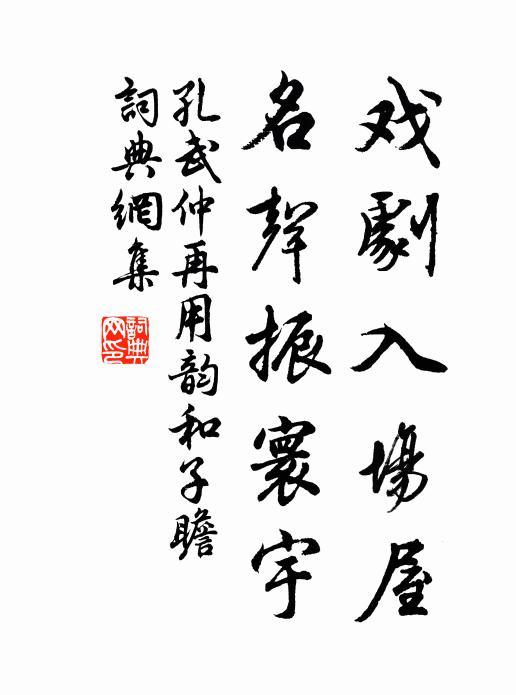 戏劇入場屋
名聲振寰宇
孔武仲再用韵和子瞻
詞典網集
詞典
网印